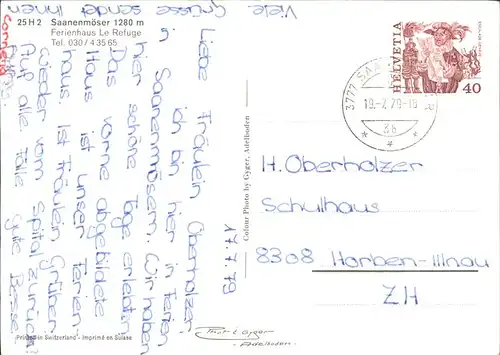 25 H 2 Saanenmöser 1280 m
Ferienhaus Le Refuge
Tel. 030 / 4 35 65
17.7.79
Liebe Fräulein Oberholzer
ich bin hier in Ferien
in Saanenmösern. Wir haben
hier schöne Tage erlebt.
Das vorne abgebildete
Haus ist unser Ferien-
haus. Ist Fräulein Grüber
wieder vom spital zurück?
Auf alle Fälle gute Besse-
Viele
Grüsse sendet Ihnen
Cornelia
HELVETIA
40
3777 SAA
19.-7.79-18
3b
H. Oberholzer
Schulhaus
8308 Horben-Illnau
ZH
Colour Photo by Gyger, Adelboden
Printed in Switzerland - Imprimé en Suisse
Adelboden.